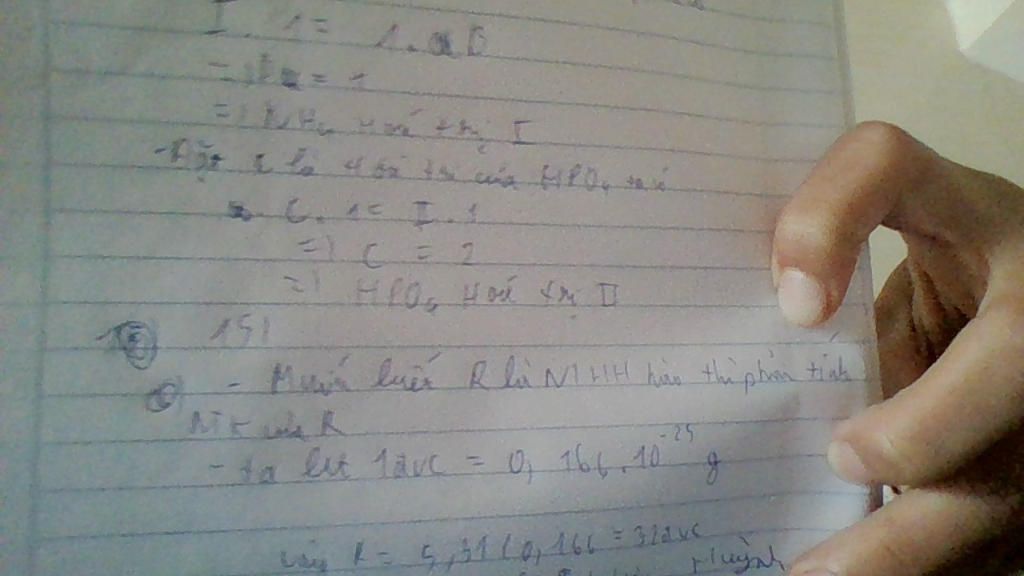 I . 1 = 1 .
= 1
=) NH₄ Hoá trị I
- Đặt là Hoá trị của HPO₄ ta có
C . 1 = I . 1
=) C = 2
=) HPO₄ Hoá trị II
15)
- Muốn biết R là NTHH nào thì phải tính
NTK của R
- ta biết 1đvc = 0,166.10⁻²³ g
vậy R = 5,31 / 0,166 = 32đvc